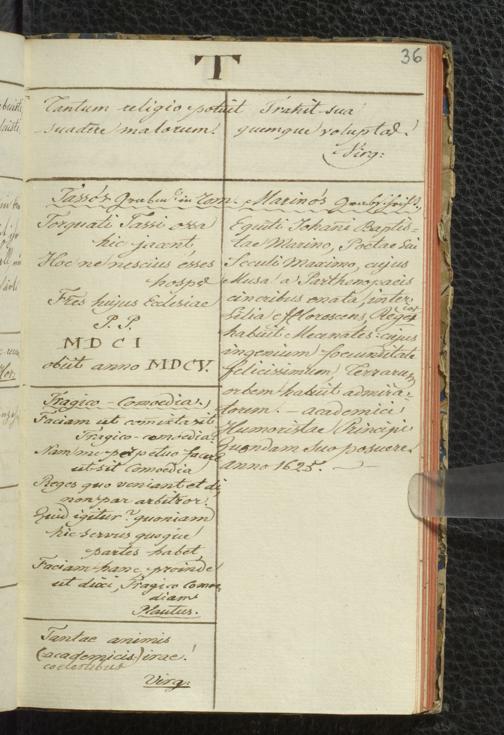 36
T
Tantum religio potuit
suadere malorum!
Trahit sua
quemque voluptas!
Virg:
Tasso's Grabm. in Rom.
Torquati Tassi ossa
hic jacent,
Hoc ne nescius esses
hospes
Fres hujus Ecclesiae
P. P.
MDCI
obiit anno MDCV.
Marino's Grabschrift
Equiti Johani Baptis-
tae Marino, Poetae sui
Seculi Maximo, cujus
Musa a Parthenopaeis
cineribus enata, inter
Lilia efflorescens, Reges
habuit Mecenates: cujus
ingenium foecunditate
felicissimum Terrarum
orbem habuit admira-
torum. – academici
Humoristae Principi
quondam suo posuere.
anno 1625.
Tragico-Comoedia.
Faciam ut comixta sit
Tragico-comoedia.
Nam me perpetuo facere
ut sit Comoedia
Reges quo veniant et di,
non par arbitror.
Quid igitur? quoniam
hic servus quoque
partes habet,
Faciam hanc proinde
ut dixi, Tragico Como-
diam
Plautus.
Tantae animis
(academicis) irae!
coelestibus
Virg: